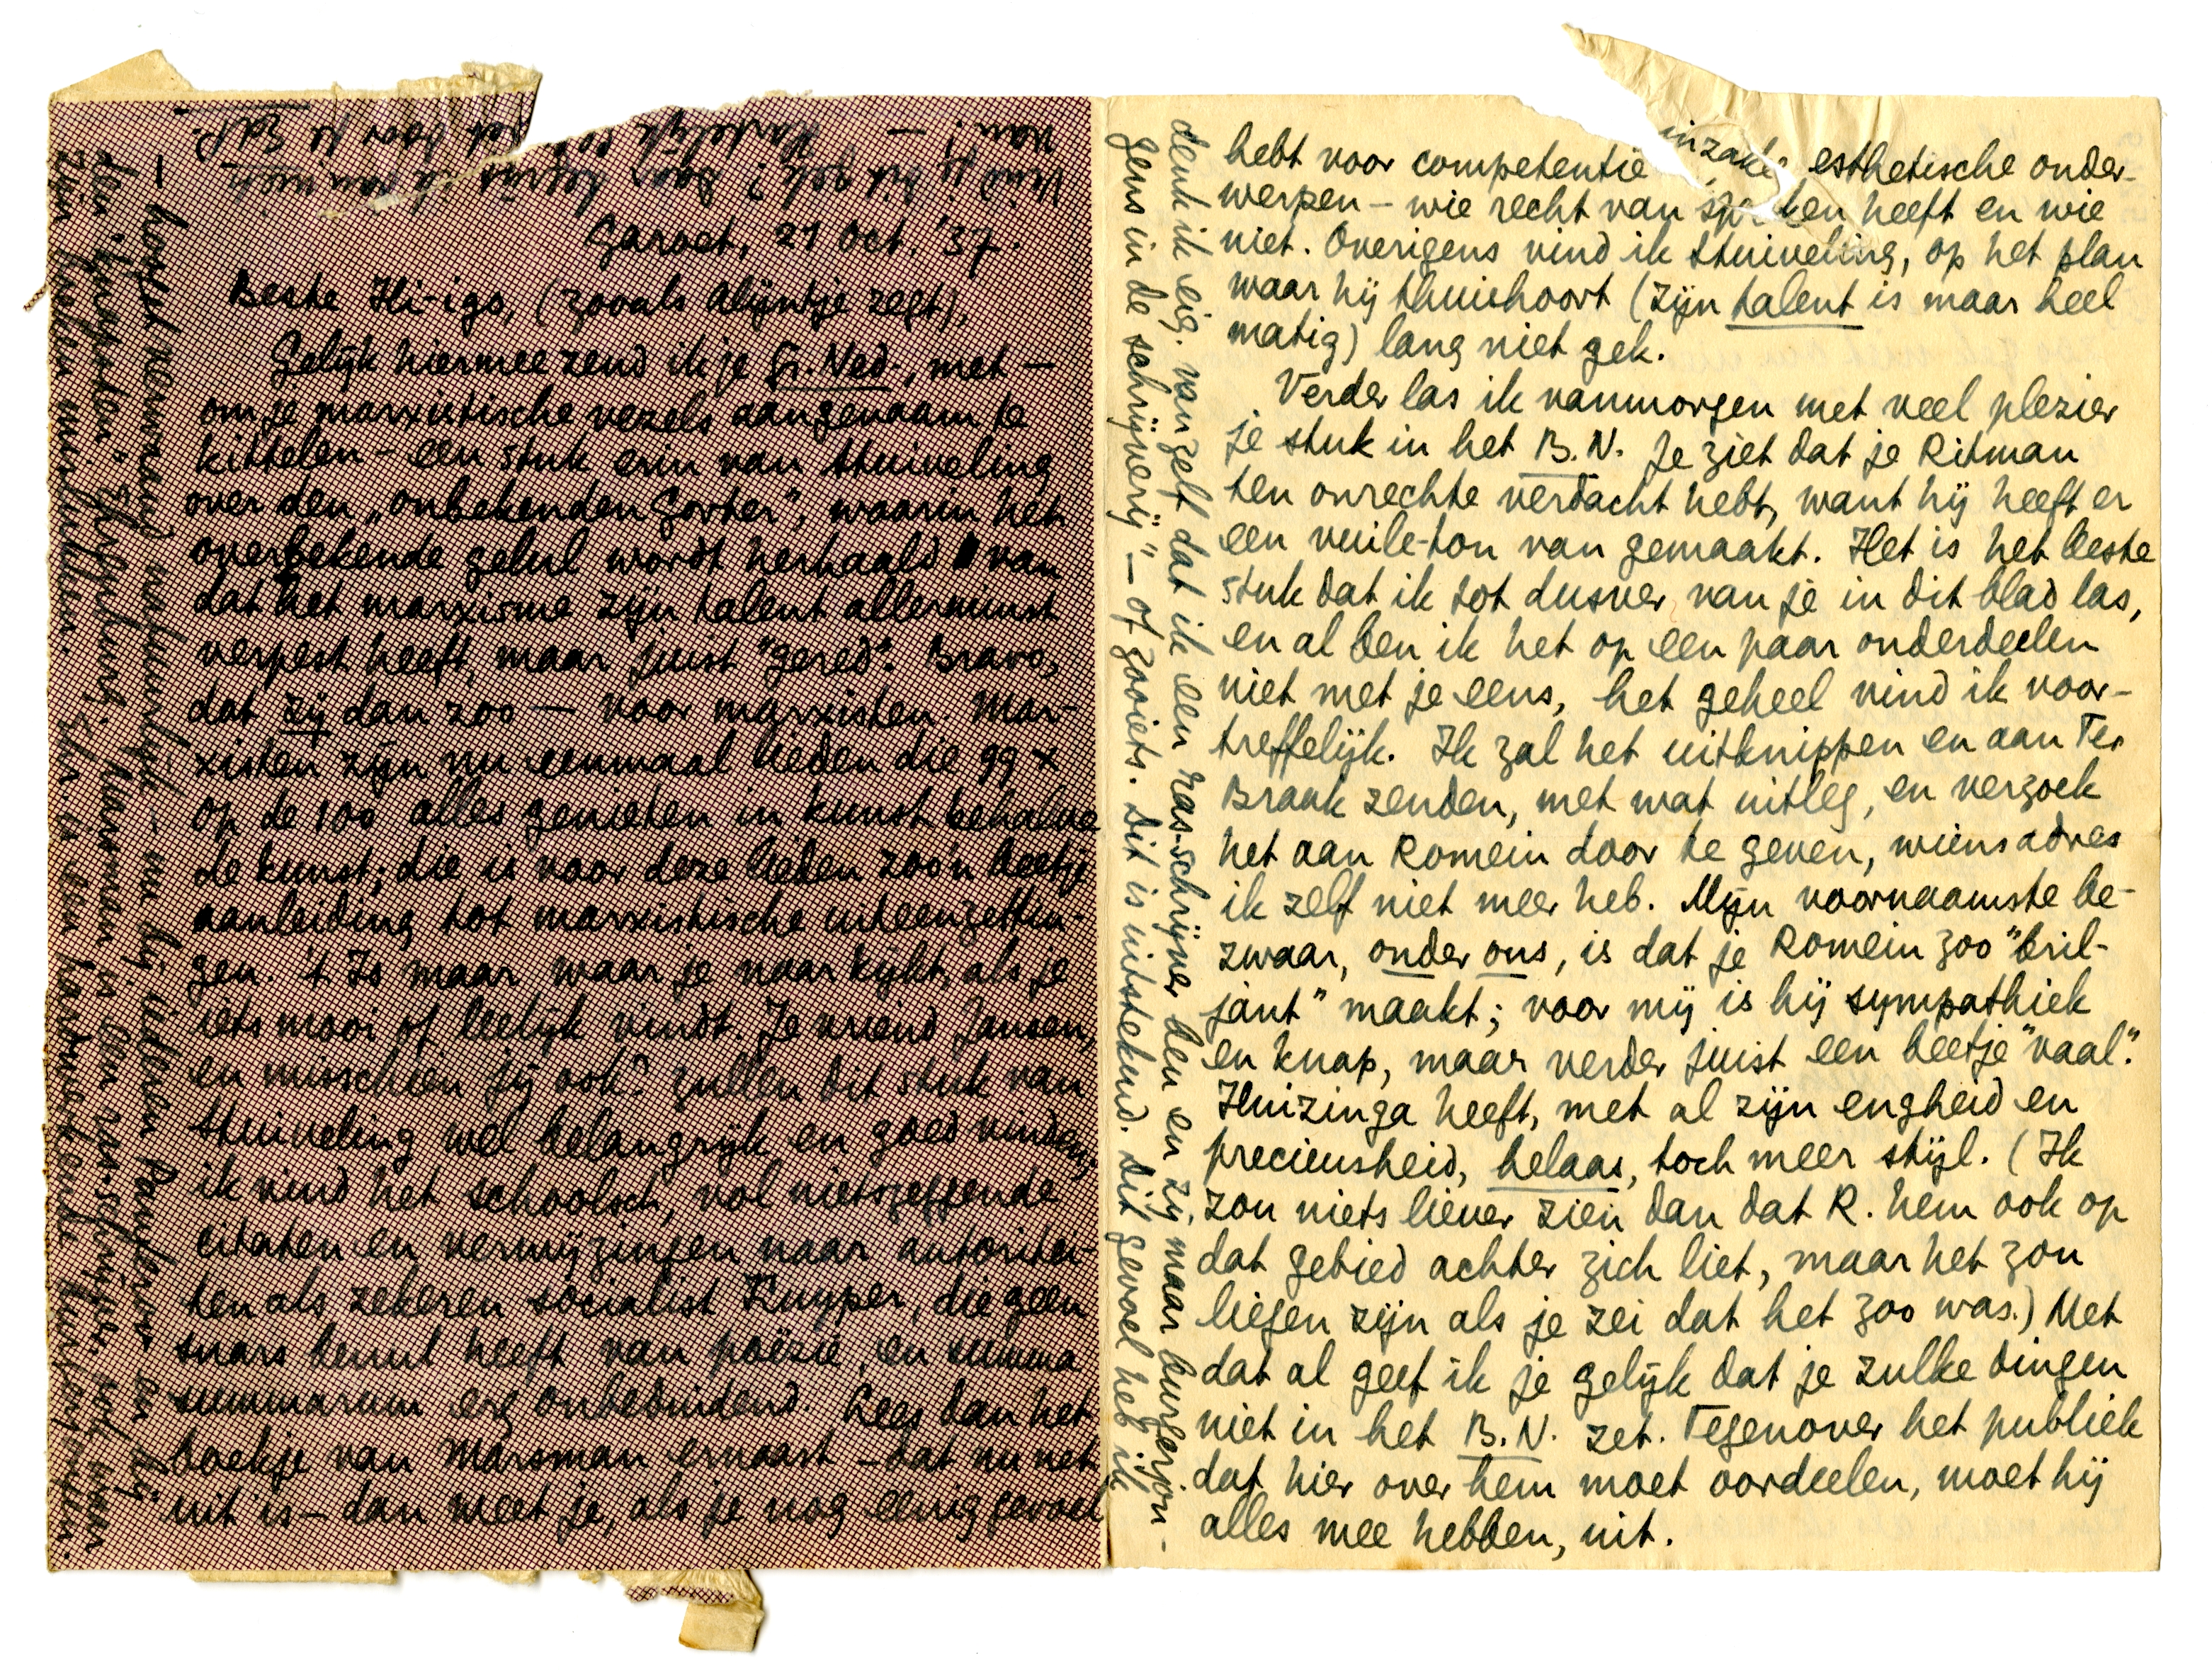 Garoet, 21 Oct. '37.
Beste Hi-igo, (zooals Alijntje zegt),
Gelijk hiermee zend ik je Gr. Ned., met —
om je marxistische vezels aangenaam te
kittelen – een stuk erin van Stuiveling
over den „onbekenden Gorter", waarin het
overbekende gelul wordt herhaald van
dat het marxisme zijn talent allerminst
verpest heeft, maar juist "gered". Bravo,
dat zij dan zoo — voor marxisten. Mar-
xisten zijn nu eenmaal lieden die 99 x
op de 100 alles genieten in kunst behalve
de kunst; die is voor deze lieden zoo'n beetje
aanleiding tot marxistische uiteenzettin-
gen. 't Is maar waar je naar kijkt, als je
iets mooi of leelijk vindt. Je vriend Jansen,
en misschien jij ook? zullen dit stuk van
Stuiveling wel belangrijk en goed vinden,
ik vind het schoolsch, vol nietszeggende
citaten en verwijzingen naar autoritei-
ten als zekeren socialist Kuyper, die geen
snars benul heeft van poëzie, en summa
summarum erg onbeduidend. Lees dan het
boekje van Marsman ernaast – dat nu net
uit is – dan meet je, als je nog eenig gevoel
hebt voor competentie inzake esthetische onder-
werpen – wie recht van spreken heeft en wie
niet. Overigens vind ik Stuiveling, op het plan
waar hij thuishoort (zijn talent is maar heel
matig) lang niet gek.
Verder las ik vanmorgen met veel plezier
je stuk in het B.N. Je ziet dat je Ritman
ten onrechte verdacht hebt, want hij heeft er
een vuile-ton van gemaakt. Het is het beste
stuk dat ik tot dusver van je in dit blad las,
en al ben ik het op een paar onderdeelen
niet met je eens, het geheel vind ik voor-
treffelijk. Ik zal het uitknippen en aan Ter
Braak zenden, met wat uitleg, en verzoek
het aan Romein door te geven, wiens adres
ik zelf niet meer heb. Mijn voornaamste be-
zwaar, onder ons, is dat je Romein zoo "bril-
jant" maakt; voor mij is hij sympathiek
en knap, maar verder juist een beetje "vaal".
Huizinga heeft, met al zijn engheid en
precieusheid, helaas, toch meer stijl. (Ik
zou niets liever zien dan dat R. hem ook op
dat gebied achter zich liet, maar het zou
liegen zijn als je zei dat het zoo was.) Met
dat al geef ik je gelijk dat je zulke dingen
niet in het B.N. zet. Tegenover het publiek
dat hier over hem moet oordeelen, moet hij
alles mee hebben, uit.
denk ik eig. vanzelf dat ik een ras-schrijver ben en zij maar burgerjon-
gens in de schrijverij" – of zooiets. Dit is uitstekend. Dit gevoel heb ik
zijn heelen
Vind jij dit gek? Daar begrijp ik dan niets
van! — Hartelijk je EdP.